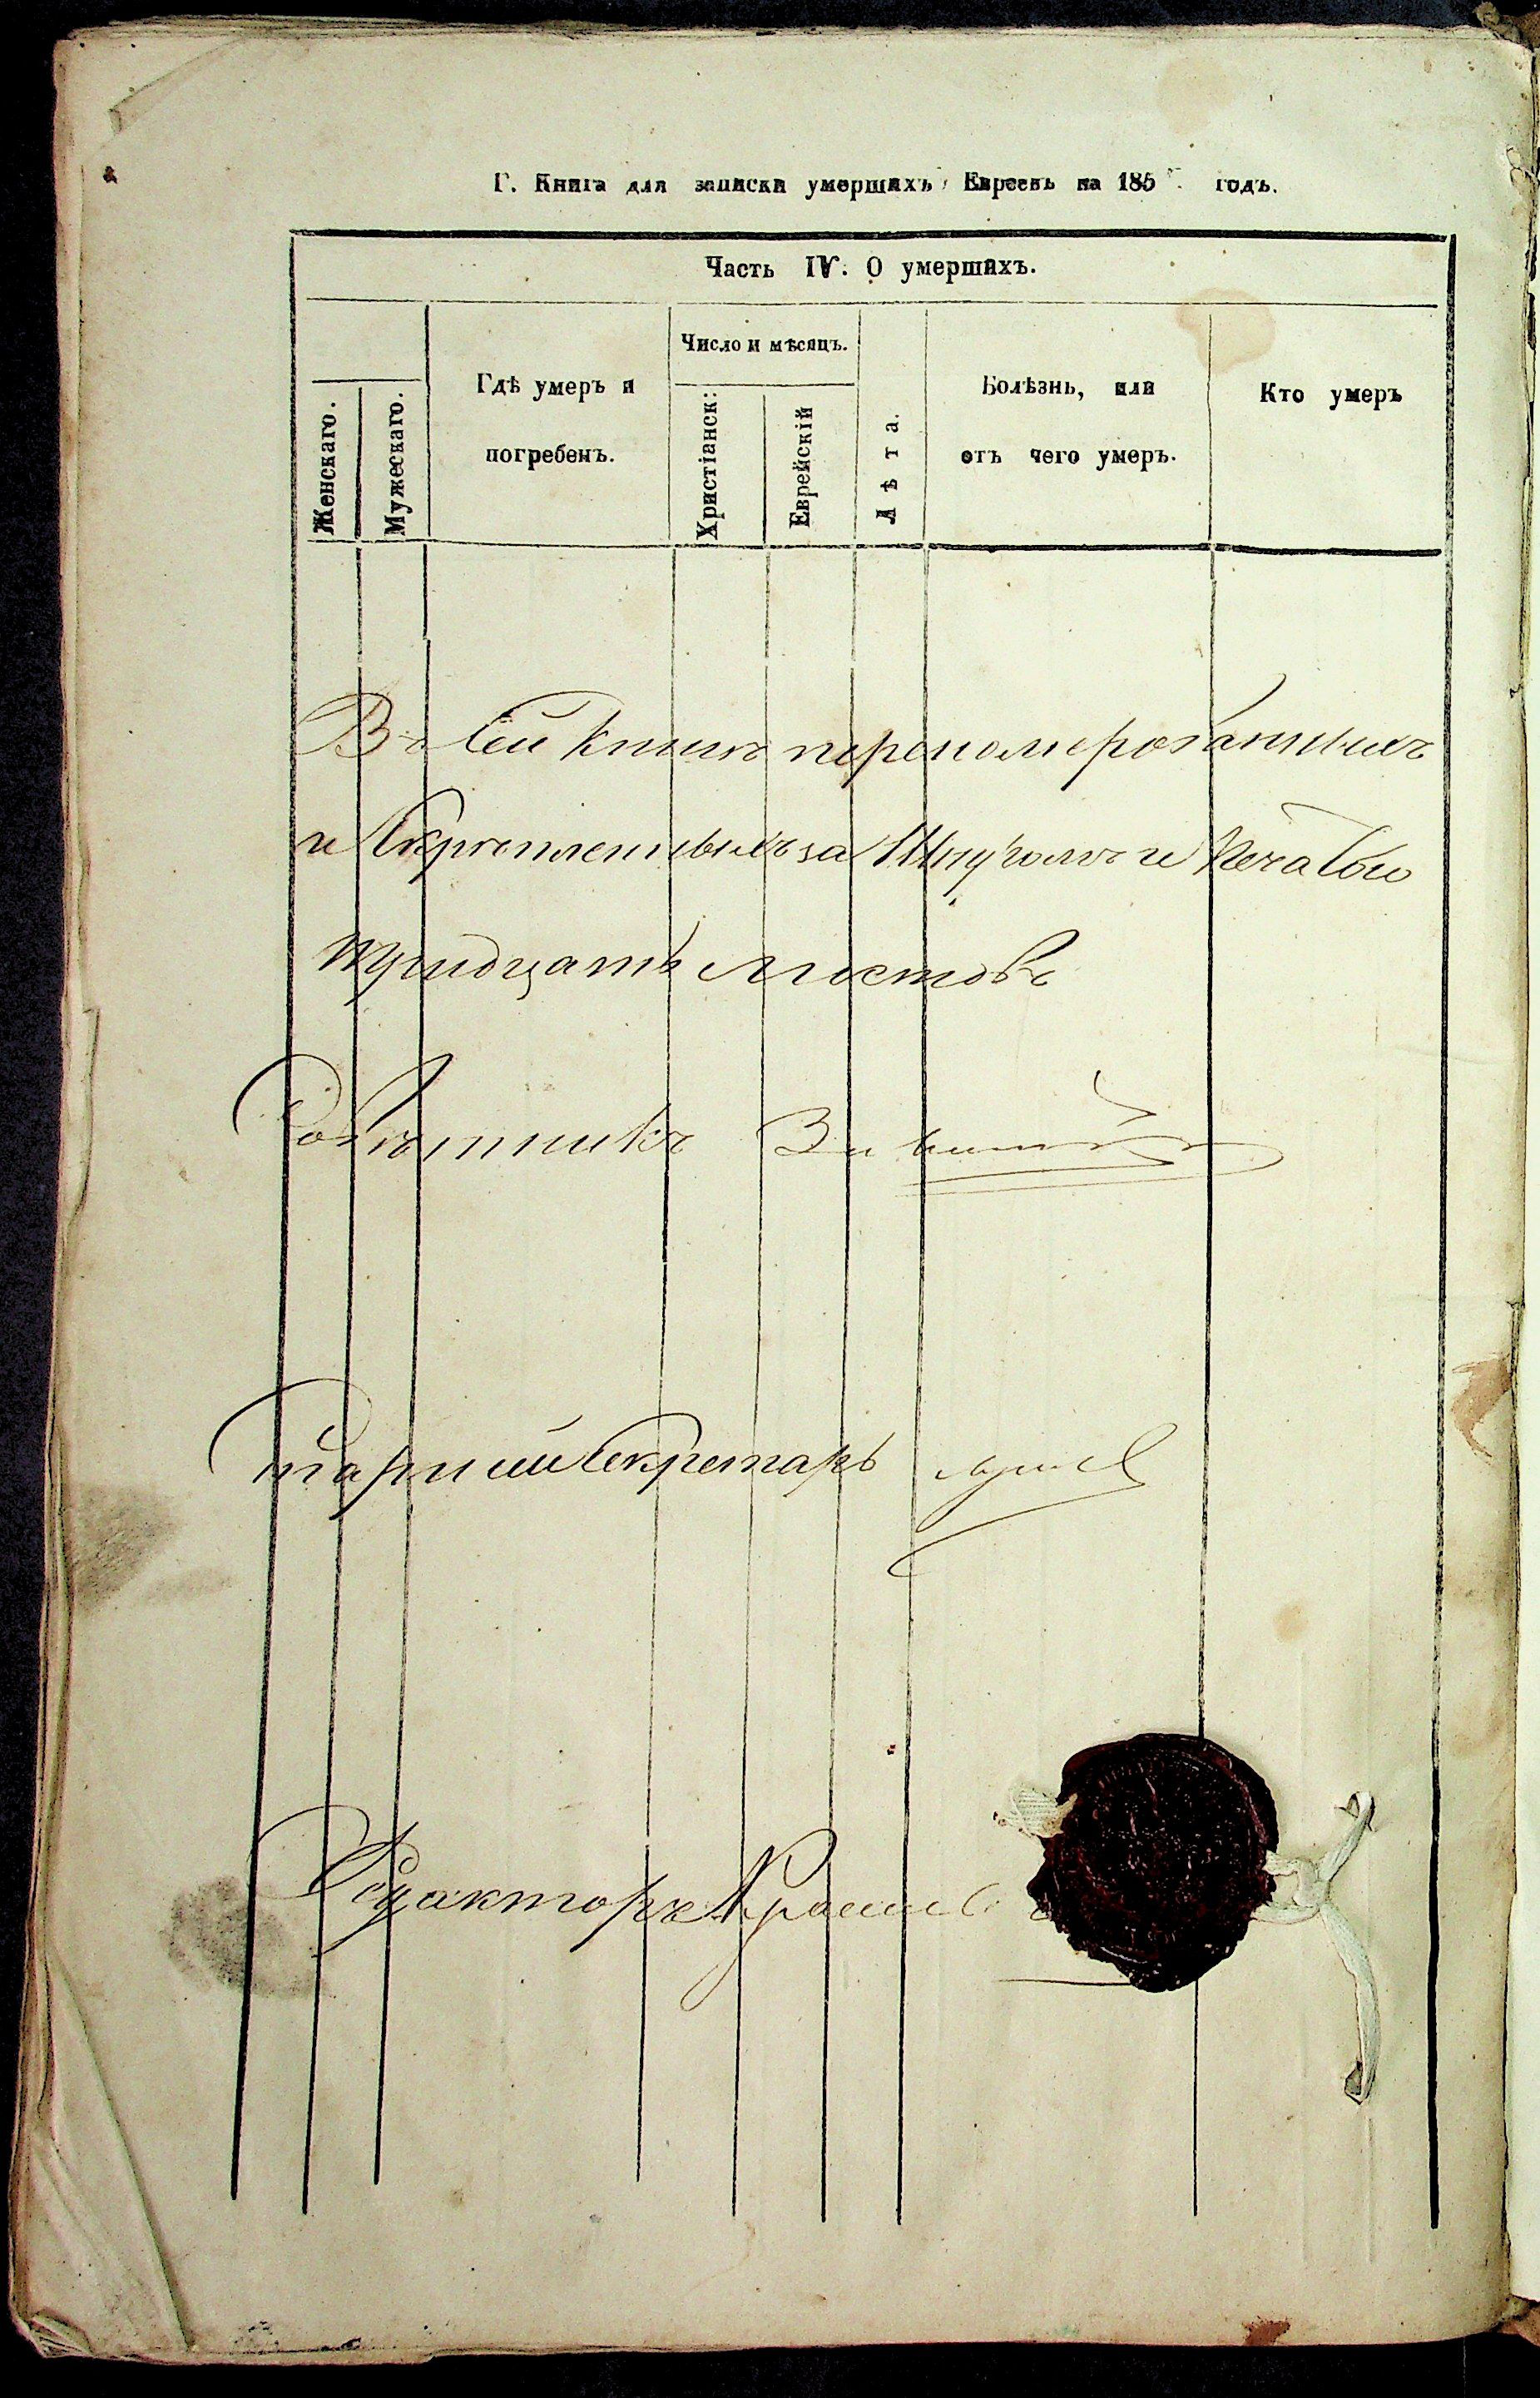 Г. Книга для записки умершихъ Евреевъ на 185 годъ.
Часть IV. О умершихъ.
Женскаго.
Мужескаго.
Гдѣ умеръ и
погребенъ.
Число и мѣсяцъ.
Христіанск:
Еврейскій
Лѣта.
Болѣзнь, или
отъ чего умеръ.
Кто умеръ
Въ сей книгѣ переномерованныхъ
и скрѣпленныхъ за Шнуромъ и печатью
тридцать листовъ
Совѣтникъ
Старшій Секретарь
Редакторъ